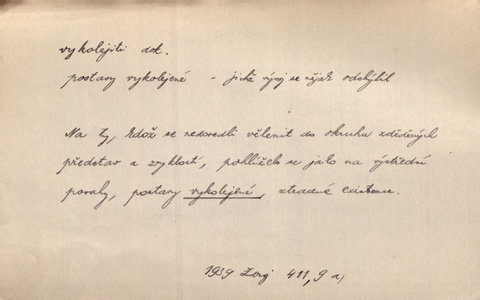 vykolejiti dok.
postavy vykolejené - jichž vývoj se nějak odchýlil
Na ty, kdož se nedovedli včlenit do okruhu zděděných
představ a zvyklostí, pohlíželo se jako na výstřední
povahy, postavy vykolejené, ztracené existence.
1939 411, 9 a)